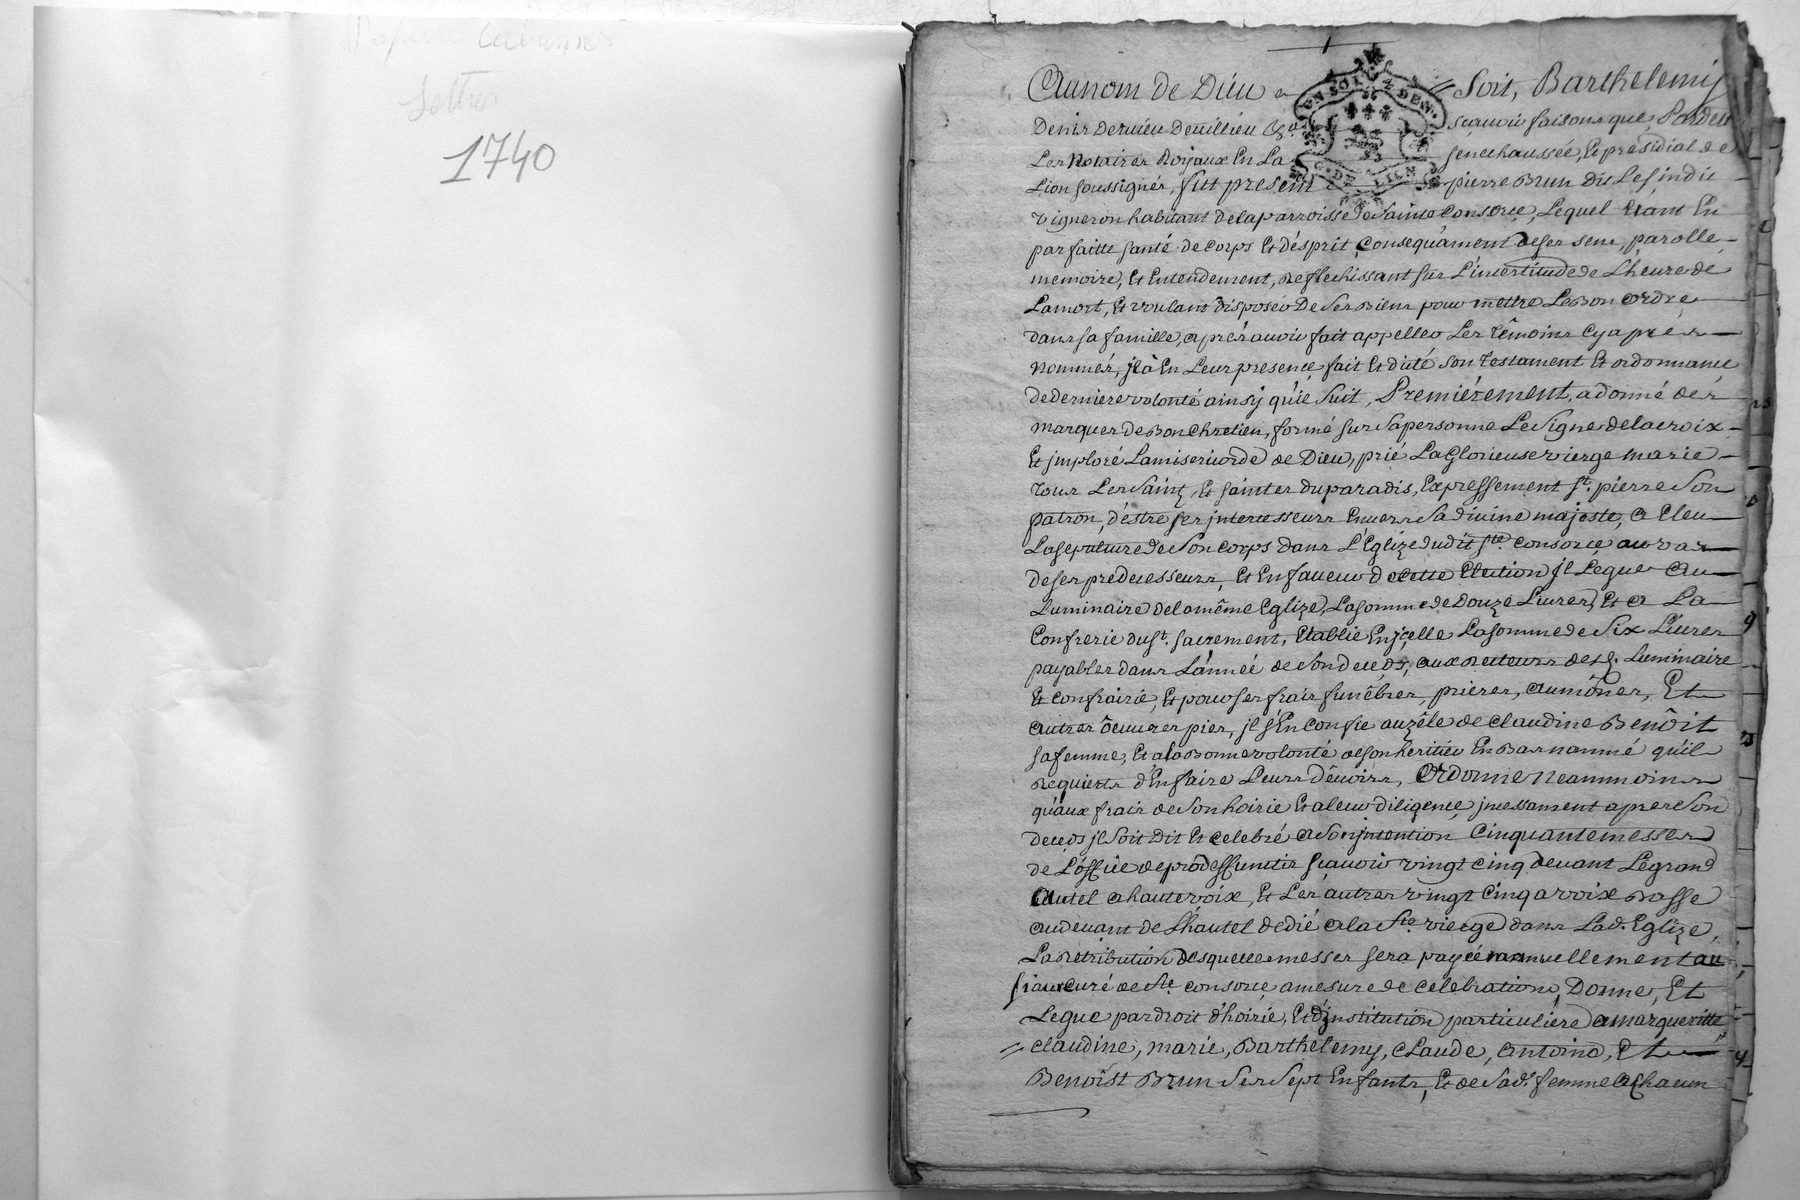 1740
Au nom de Dieu Soit, Barthelemij
Denis Deruieu Deuillieu scauoir faisons que, Pardeu
Les Notaires Roÿaux En La senechaussée, Et présidial de
Lion soussignés, fut present pierre Brun dit Le sindic
vigneron habitant de la parroisse de sainte Consorce, Lequel Etant En
parfaitte santé de corps Et désprit consequâment de ses sens, parolle
memoire, Et Entendement, Reflechissant sur L'incertitude de L'heure de
La mort, Et voulant Disposer De ses Biens pour mettre Le Bon ordre
dans sa famille, apres auoir fait appeller Les têmoins cy apres
nommés, jl à En Leur presence fait Et dicté son testament Et ordonnance
de derniere volonté ainsij qu'ie suit, Premiérement, a donné des
marques de Bon Chretien, formé sur sa personne Le signe de la croix
Et jmploré La misericorde de Dieu, prié La Glorieuse vierge marie
tous Les saints, Et saintes du paradis, Expressement st. pierre son
patron, d'éstre ses jntercesseurs Enuers sa diuine majeste, a Eleu
La sepulture de son corps dans L'Eglize dudit ste. consorce au vas
de ses predecesseurs, Et En faueur de cette Election jl Legue au
Luminaire de la même Eglize, La somme de Douze Liures, Et a La
Confrerie du st. sacrement, Etablie En jcelle La somme de six Liures
payables dans L'année de son decéds, aux recteurs desd. Luminaire
Et confrairie, Et pour ses frais funêbres, prieres, aumônes, Et
autres ôeuures pies, jl s'En confie au zêle de claudine Benôit
sa femme, Et a la Bonne volonté de son hèritier En Bas nammé qu'il
Requiert d'En faire Leurs dêuoirs, Ordonne Neanmoins
qu'aux frais de son hoirie Et a leur diligence, jncessament apres son
deceds jl soit Dit Et celebré a son jntention Cinquante messes
de L'office de prodeffunctis scauoir vingt cinq deuant Le grand
Autel a haute voix, Et Les autres vingt cinq a voix Basse
au deuant de L'hautel dedié a la ste. vierge dans Lad. Eglize,
La retribution desquelles messes sera payée manuellement au
si aucuré de ste. consorce amesure de celebration, Donne, Et
Legue par droit d'hoirie, Et d'jnstitution particuliére a margueritte
claudine, marie, Barthelemy, Claude, antoine, Et
Benoist Brun ses sept Enfants, Et de sad. femme a chacun